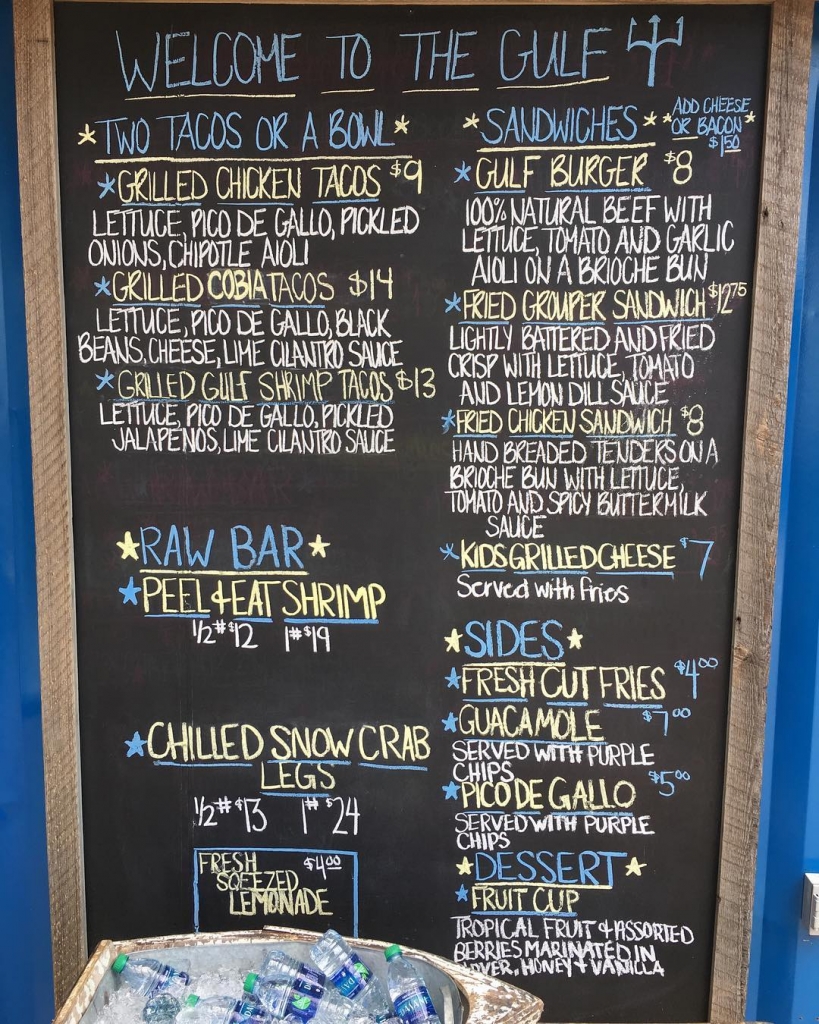 WELCOME TO THE GULF
TWO TACOS OR A BOWL
GRILLED CHICKEN TACOS $9
LETTUCE, PICO DE GALLO, PICKLED
ONIONS, CHIPOTLE AIOLI
GRILLED COBIA TACOS $14
LETTUCE, PICO DE GALLO, BLACK
BEANS, CHEESE, LIME CILANTRO SAUCE
GRILLED GULF SHRIMP TACOS $13
LETTUCE, PICO DE GALLO, PICKLED
JALAPENOS, LIME CILANTRO SAUCE
RAW BAR
PEEL & EAT SHRIMP
1/2# $12 1# $19
CHILLED SNOW CRAB
LEGS
1/2# $13 1# $24
FRESH $4.00
SQEEZED
LEMONADE
SANDWICHES
ADD CHEESE
OR BACON
$1.50
GULF BURGER $8
100% NATURAL BEEF WITH
LETTUCE, TOMATO AND GARLIC
AIOLI ON A BRIOCHE BUN
FRIED GROUPER SANDWICH $12.75
LIGHTLY BATTERED AND FRIED
CRISP WITH LETTUCE, TOMATO
AND LEMON DILL SAUCE
FRIED CHICKEN SANDWICH $8
HAND BREADED TENDERS ON A
BRIOCHE BUN WITH LETTUCE,
TOMATO AND SPICY BUTTERMILK
SAUCE
KIDS GRILLED CHEESE $7
Served with fries
SIDES
FRESH CUT FRIES $4.00
GUACAMOLE $7.00
SERVED WITH PURPLE
CHIPS
PICO DE GALLO $5.00
SERVED WITH PURPLE
CHIPS
DESSERT
FRUIT CUP
TROPICAL FRUIT & ASSORTED
BERRIES MARINATED IN
HONEY & VANILLA